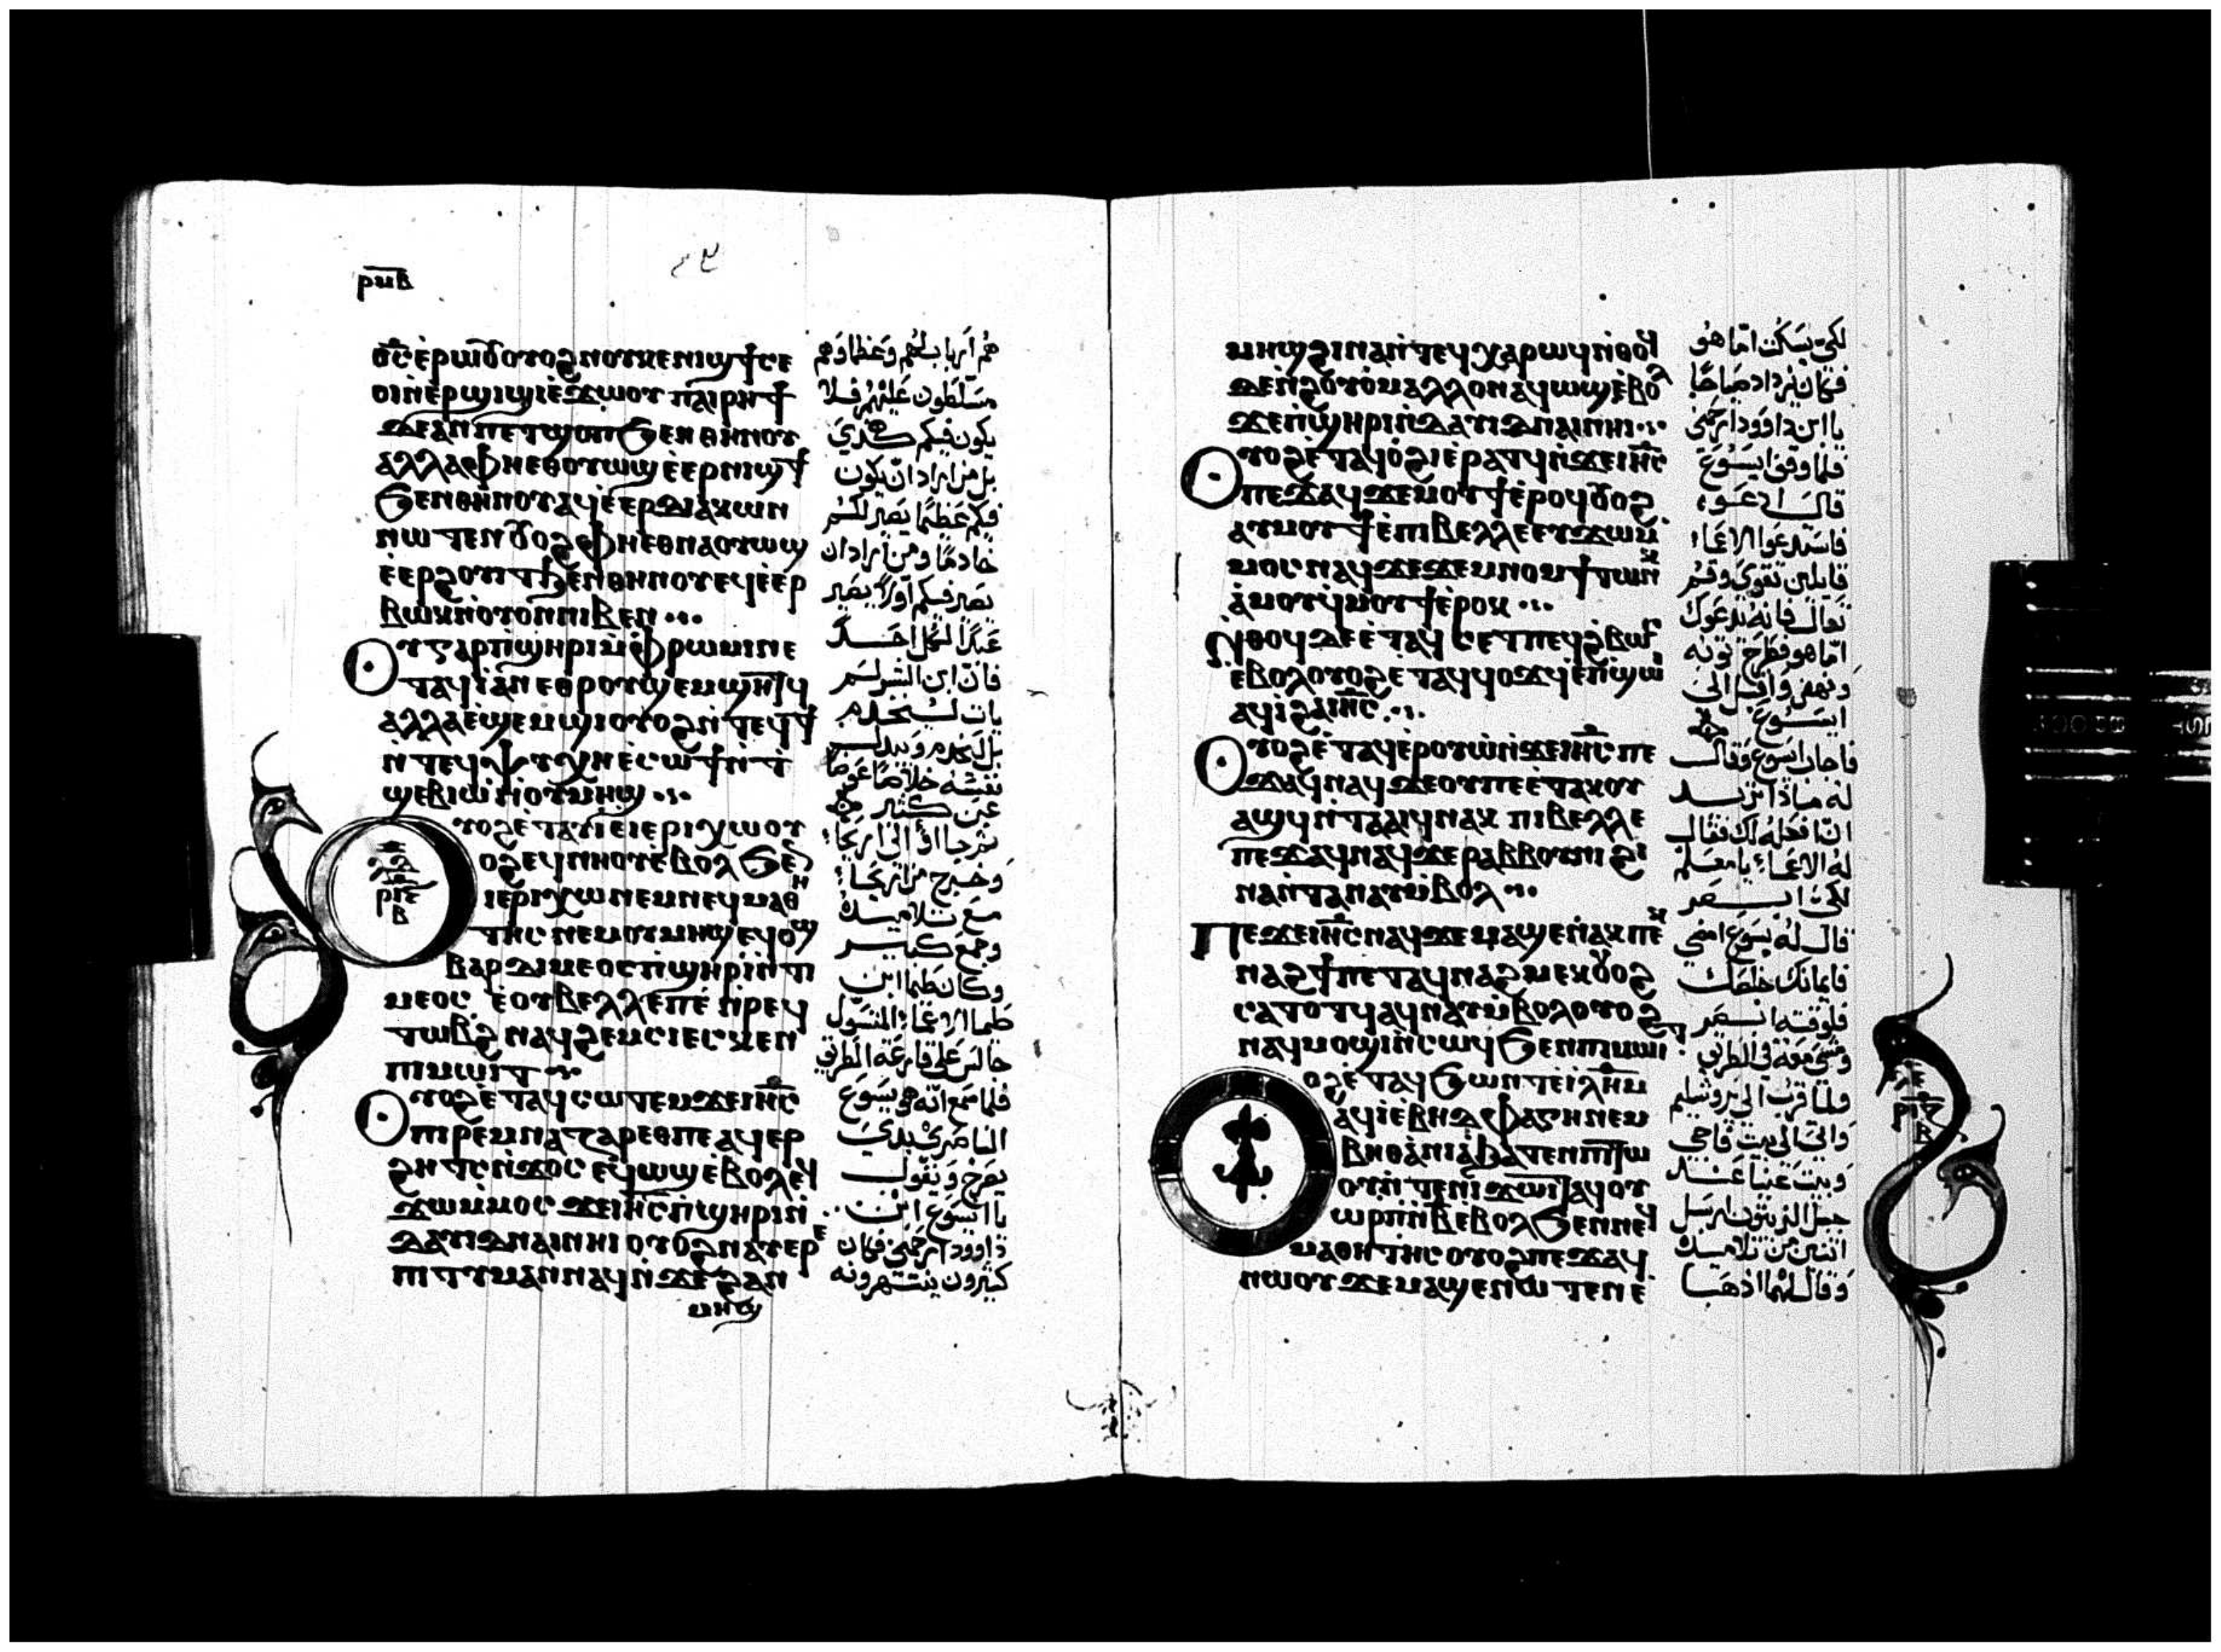 ⲣⲙⲃ
ⲟ̅ⲥ̅ ⲉ̀ⲣⲱⲟⲩ ⲟⲩⲟϩ ⲛⲟⲩⲕⲉⲛⲓϣϯ ⲥⲉ
ⲟⲓ ⲛ̀ⲉⲣϣⲓϣⲓ ⲉ̀ϫⲱⲟⲩ ⲡⲁⲓⲣⲏϯ
ⲇⲉ ⲁⲛ ⲡⲉⲧϣⲟⲡ ϧⲉⲛ ⲑⲏⲛⲟⲩ
ⲁⲗⲗⲁ ⲫⲏ ⲉⲑⲟⲩⲱϣ ⲉ̀ⲉⲣⲛⲓϣϯ
ϧⲉⲛ ⲑⲏⲛⲟⲩ ⲁϥⲉ̀ⲉⲣⲇⲓⲁⲕⲱⲛ
ⲛⲱⲧⲉⲛ ⲟⲩⲟϩ ⲫⲏ ⲉⲑⲛⲁⲟⲩⲱϣ
ⲉ̀ⲉⲣϩⲟⲩⲓⲧ ϧⲉⲛ ⲑⲏⲛⲟⲩ ⲉϥⲉ̀ⲉⲣ
ⲃⲱⲕ ⲛ̀ⲟⲩⲟⲛ ⲛⲓⲃⲉⲛ
ⲟⲩ ⲅⲁⲣ ⲡ̀ϣⲏⲣⲓ ⲙ̀ⲫⲣⲱⲙⲓ ⲛⲉ
ⲧⲁϥⲓ̀ ⲁⲛ ⲉⲑⲣⲟⲩϣⲉⲙϣⲏⲧϥ
ⲁⲗⲗⲁ ⲉ̀ϣⲉⲙϣⲓ ⲟⲩⲟϩ ⲛ̀ⲧⲉϥϯ
ⲛ̀ⲧⲉϥⲯⲩⲭⲏ ⲉ̀ⲥⲱϯ ⲛ̀ⲧ
ϣⲉⲃⲓⲱ̀ ⲛ̀ⲟⲩⲙⲏϣ
ⲟⲩⲟϩ ⲉ̀ⲧⲁⲩⲓ̀ ⲉ̀ⲓⲉⲣⲓⲭⲱ ⲟⲩ
ⲟϩ ⲉϥⲛⲏⲟⲩ ⲉ̀ⲃⲟⲗ ϧⲉⲛ
ⲓⲉⲣⲓⲭⲱ ⲛⲉⲙ ⲛⲉϥⲙⲁⲑⲏ
ⲧⲏⲥ ⲛⲉⲙ ⲟⲩⲙⲏϣ ⲉϥⲟϣ
ⲃⲁⲣⲇⲓⲙⲉⲟⲥ ⲡ̀ϣⲏⲣⲓ ⲛ̀ⲧⲓ
ⲙⲉⲟⲥ ⲉ̀ⲟⲩⲃⲉⲗⲗⲉ ⲡⲉ ⲛ̀ⲣⲉϥ
ⲧⲱⲃϩ ⲛⲁϥϩⲉⲙⲥⲓ ⲉⲥⲕⲉⲛ
ⲡⲓⲙⲱⲓⲧ
ⲟⲩⲟϩ ⲉ̀ⲧⲁϥⲥⲱⲧⲉⲙ ϫⲉ ⲓⲏ̅ⲥ̅
ⲡⲓⲣⲉⲙⲛⲁⲍⲁⲣⲉⲑ ⲡⲉ ⲁϥⲉⲣ
ϩⲏⲧⲥ ⲛ̀ϫⲟⲥ ⲉϥⲱϣ ⲉ̀ⲃⲟⲗ ⲉϥ
ϫⲱ ⲙ̀ⲙⲟⲥ ϫⲉ ⲓⲏ̅ⲥ̅ ⲡ̀ϣⲏⲣⲓ ⲛ̀
ⲇⲁⲩⲓⲇ ⲛⲁⲓ ⲛⲏⲓ ⲟⲩⲟϩ ⲛⲁⲩⲉⲣⲉ
ⲡⲓⲧⲓⲙⲁⲛ ⲛⲁϥ ⲛ̀ϫⲉ ϩⲁⲛ
ⲙⲏϣ
هم اربابهم وعظماوهم
مسلطون عليهم فلا
يكون فيكم هكذي
بل من اراد ان يكون
فيكم عظيما يصير لكم
خادما ومن اراد ان
يصير فيكم اولا يصير
عبدا لكل احد
فان ابن البشر لم
يات ليخدم
بل ليخدم ويبذل
نفسه خلاصا عوضا
عن كثير
ثم جاا الى اريحا
وخرج من اريحا
مع تلاميذه
وجمع كبير
وكان طيما ابن
طيما الاعما المتسول
جالس على قارعة الطريق
فلما سمع انه هو يسوع
الناصري بدي
يصرخ ويقول
يا ايسوع ابن
داوود ارحمني فكان
كثيرون ينتهرونه
ⲙⲏϣ ϩⲓⲛⲁ ⲛ̀ⲧⲉϥⲭⲁⲣⲱϥ ⲛ̀ⲑⲟϥ
ⲇⲉ ⲛ̀ϩⲟⲩⲟ̀ ⲙⲁⲗⲗⲟⲛ ⲁϥⲱϣ ⲉ̀ⲃⲟⲗ
ϫⲉ ⲡ̀ϣⲏⲣⲓ ⲛ̀ⲇⲁⲩⲓⲇ ⲛⲁⲓ ⲛⲏⲓ
ⲟⲩⲟϩ ⲉ̀ⲧⲁϥⲟ̀ϩⲓ ⲉ̀ⲣⲁⲧϥ ⲛ̀ϫⲉ ⲓⲏ̅ⲥ̅
ⲡⲉϫⲁϥ ϫⲉ ⲙⲟⲩϯ ⲉ̀ⲣⲟϥ ⲟⲩⲟϩ
ⲁⲩⲙⲟⲩϯ ⲉ̀ⲡⲓⲃⲉⲗⲗⲉ ⲉⲩϫⲱ ⲙ̀
ⲙⲟⲥ ⲛⲁϥ ϫⲉ ϫⲉⲙⲛⲟⲙϯ ⲧⲱⲛⲕ
ⲁ̀ⲙⲟⲩ ϥⲙⲟⲩϯ ⲉ̀ⲣⲟⲕ
ⲛ̀ⲑⲟϥ ⲇⲉ ⲉ̀ⲧⲁϥⲥⲉⲧ ⲡⲉϥϩ̀ⲃⲱⲥ
ⲉ̀ⲃⲟⲗ ⲟⲩⲟϩ ⲉ̀ⲧⲁϥϥⲟϫϥ ⲉ̀ⲡ̀ϣⲱⲓ
ⲁϥⲓ̀ ϩⲁ ⲓⲏ̅ⲥ̅
ⲟⲩⲟϩ ⲉ̀ⲧⲁϥⲉ̀ⲣⲟⲩⲱ̀ ⲛ̀ϫⲉ ⲓⲏ̅ⲥ̅ ⲡⲉ
ϫⲁϥ ⲛⲁϥ ϫⲉ ⲟⲩ ⲡⲉ ⲉ̀ⲧⲁⲕⲟⲩ
ⲁϣϥ ⲛ̀ⲧⲁⲁⲓϥ ⲛⲁⲕ ⲡⲓⲃⲉⲗⲗⲉ
ⲡⲉϫⲁϥ ⲛⲁϥ ϫⲉ ⲣⲁⲃⲃⲟⲩⲛⲓ ϩⲓ
ⲛⲁ ⲛ̀ⲧⲁⲛⲁⲩ ⲙ̀ⲃⲟⲗ
ⲡⲉϫⲉ ⲓⲏ̅ⲥ̅ ⲛⲁϥ ϫⲉ ⲙⲁϣⲉ ⲛⲁⲕ ⲡⲉⲕ
ⲛⲁϩϯ ⲡⲉⲧⲁϥⲛⲁϩⲙⲉⲕ ⲟⲩⲟϩ
ⲥⲁⲧⲟⲧϥ ⲁϥⲛⲁⲩ ⲙ̀ⲃⲟⲗ ⲟⲩⲟϩ
ⲛⲁϥⲙⲟϣⲓ ⲛ̀ⲥⲱϥ ϧⲉⲛ ⲡⲓⲙⲱⲓⲧ
ⲟϩ ⲉ̀ⲧⲁϥϧⲱⲛⲧ ⲉ̀ⲓ̀ⲗ̅ⲏ̅ⲙ̅
ⲁϥⲓ̀ ⲉ̀ⲃⲏⲇⲫⲁⲅⲏ ⲛⲉⲙ
ⲃⲏⲑⲁ̀ⲛⲓⲁ̀ ϧⲁⲧⲉⲛ ⲡⲓⲧⲱ
ⲟⲩ ⲛ̀ⲧⲉ ⲛⲓϫⲱⲓⲧ ⲁϥⲟⲩ
ⲱⲣⲡ ⲛ̀ⲃ ⲉ̀ⲃⲟⲗ ϧⲉⲛ ⲛⲉϥ
ⲙⲁⲑⲏⲧⲏⲥ ⲟⲩⲟϩ ⲡⲉϫⲁϥ
ⲛⲱⲟⲩ ϫⲉ ⲙⲁϣⲉ ⲛⲱⲧⲉⲛ ⲉ
لكي يسكت اما هو
فكان يزداد صياحا
يا ابن داوود ارحمني
فلما وقف ايسوع
قال ادعوه
فاستدعوا الاعما
قايلين تقوى وقم
تعال فانه يدعوك
اما هو فطرح ثوبه
ونهض واقبل الى
ايسوع
فاجاب ايسوع وقال
له ماذا تريد
ان افعله لك فقال
له الاعما يا معلم
لكي ابصر
قال له يسوع امضي
فايمانك خلصك
فلوقته ابصر
ومشى معه في الطريق
ولما قرب الى يروشليم
واتى الى بيت فاجي
وبيت عنيا عند
جبل الزيتون ارسل
اثنين من تلاميذه
وقال لهما اذهبا